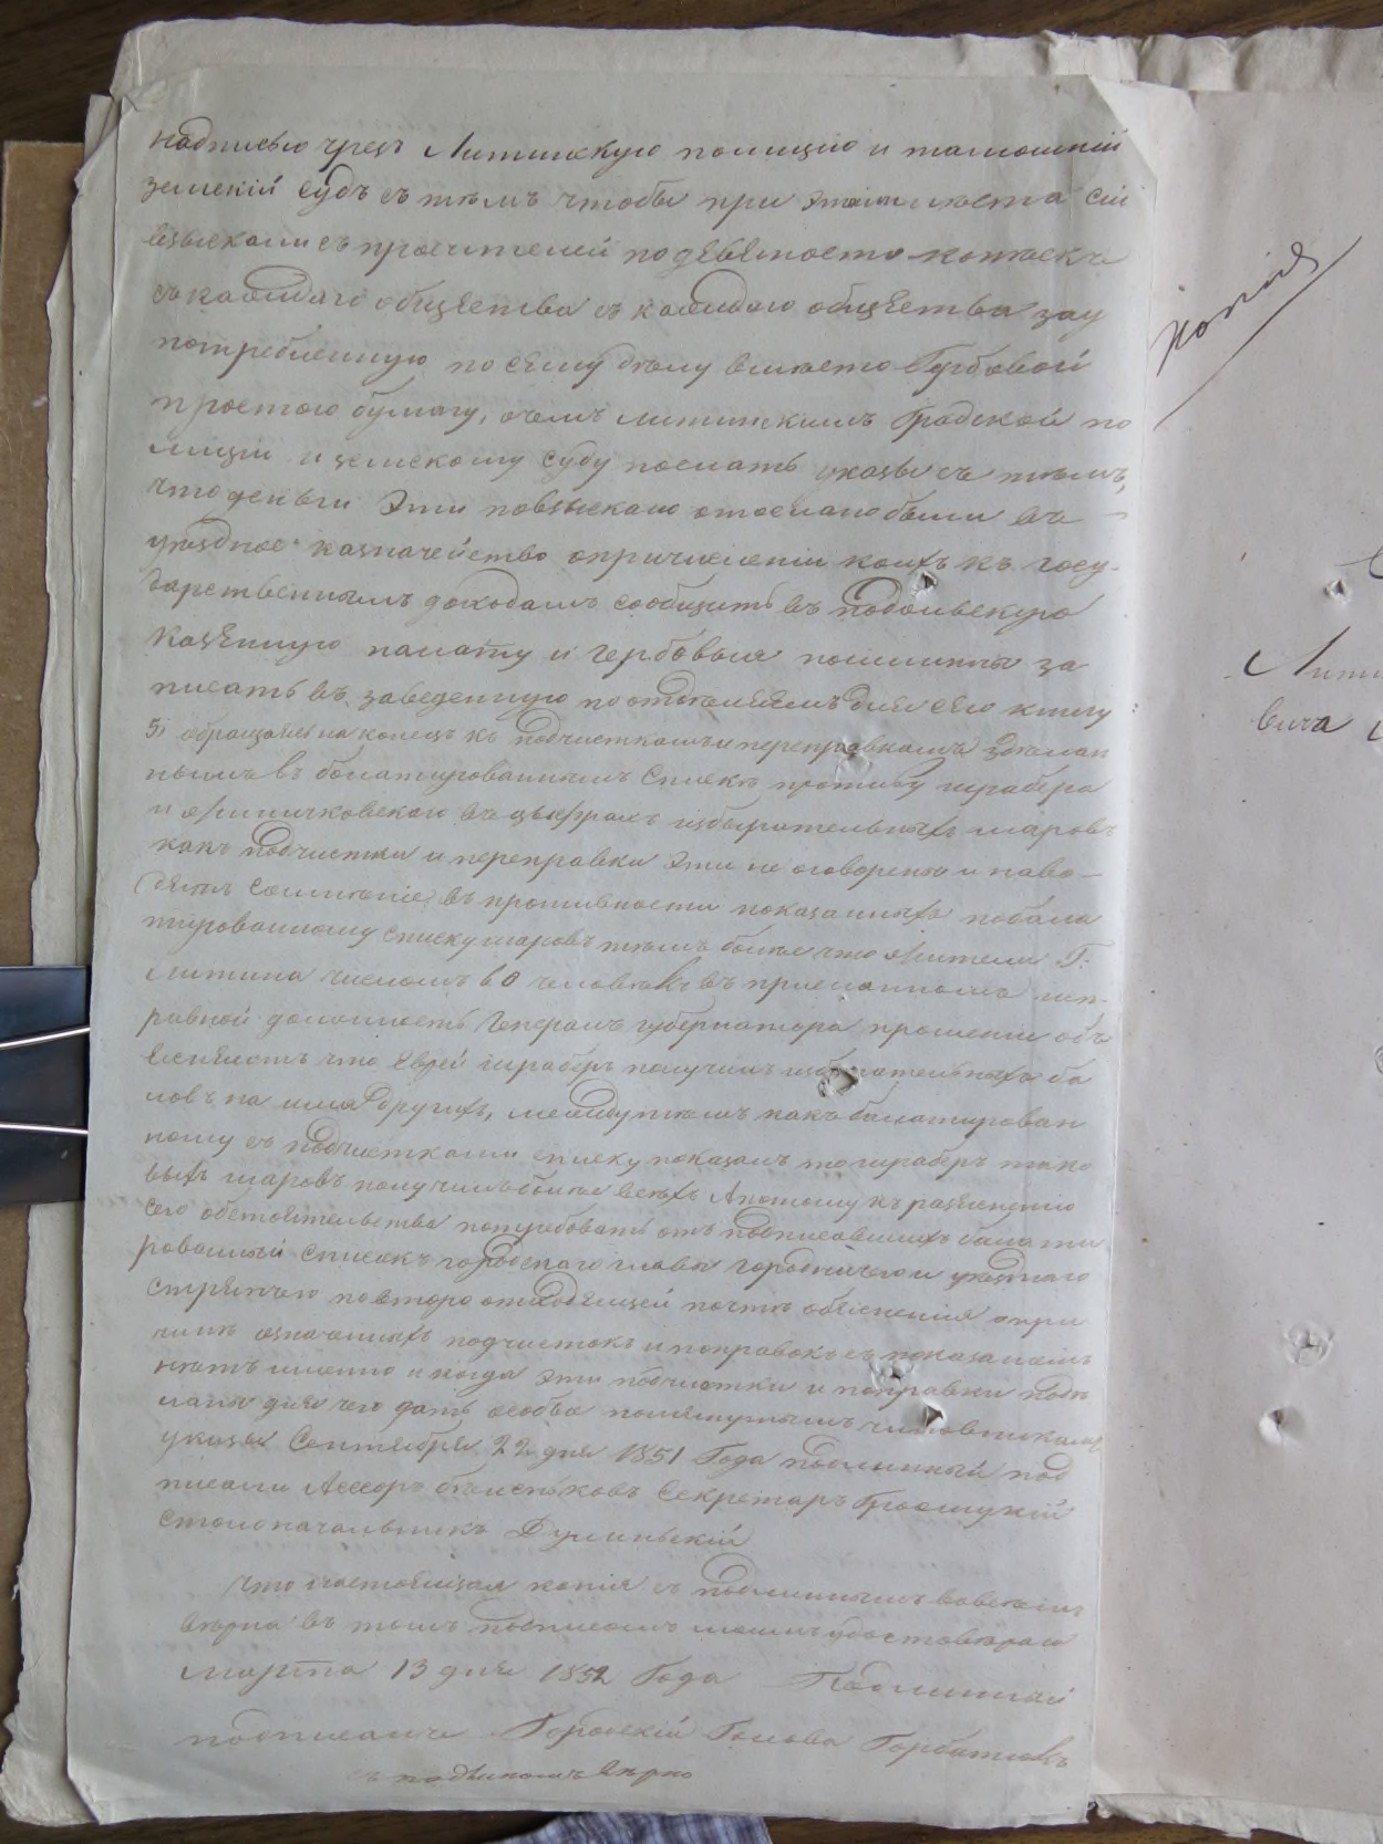 надписью чрезъ Литинскую полицію и тамошній
земскій судъ съ тѣмъ чтобы при этомъ мѣста сіи
взыскали съ просителей по девяносто копѣекъ
съ каждаго общества съ каждаго общества за у
потребленную по сему дѣлу вмѣсто Гербовой
простою бумагу, о чемъ литинскимъ Градской по
лиціи и земскому суду послать указы съ тѣмъ,
что деньги эти повзыскаю отосланы были въ
уѣздное казначейство опричисленіи коихъ къ госу-
дарственнымъ доходамъ сообщить въ подольскую
казенную палату и гербовыя пошлины за
писать въ заведенную по отдѣленіямъ для сего книгу
5) обращаясь на конецъ къ подчисткамъ и переправкамъ здѣлан
нымъ въ балатированнымъ спискѣ противу шрабера
и въ цыфрахъ избирательныхъ шаровъ
какъ подчистки и переправки эти не оговорены и наво-
дятъ сомнѣніе въ противности показаныхъ побала
тированному списку шаровъ тѣмъ болѣе что жители Г.
Литина числомъ 60 человѣкъ въ присланномъ исп-
равной должность Генералъ губернатора прошеніи объ
ясняютъ что еврей шраберъ получилъ избирательныхъ ба
ловъ на имя другихъ, между тѣмъ какъ балатирован
ному съ подчистками списку показанъ то шраберъ тако
выхъ шаровъ получилъ болѣе всехъ А потому къ разясненію
сего обстоятельства потребовать отъ подписавшихъ балати
рованный списокъ городскаго главы городничаго и уѣзднаго
стряпчаго повторо отходящей почтѣ обясненія опри
чинѣ означеныхъ подчистокъ и поправокъ съ показаніемъ
кѣмъ именно и когда эти подчистки и поправки
для чего дать особые помянутымъ чиновникамъ
указы Сентября 22 дня 1851 Года подлинный под
писали Асесоръ Секретарь
столоначальникъ
Что настоящая копія съ подлиннымъ во всемъ
вѣрна въ томъ подписомъ моимъ удостовѣряю
марта 13 дня 1852 Года Подлинный
подписалъ Городскій Голова Горбатювъ
съ подлиномъ вѣрно
копія
Лити
вича